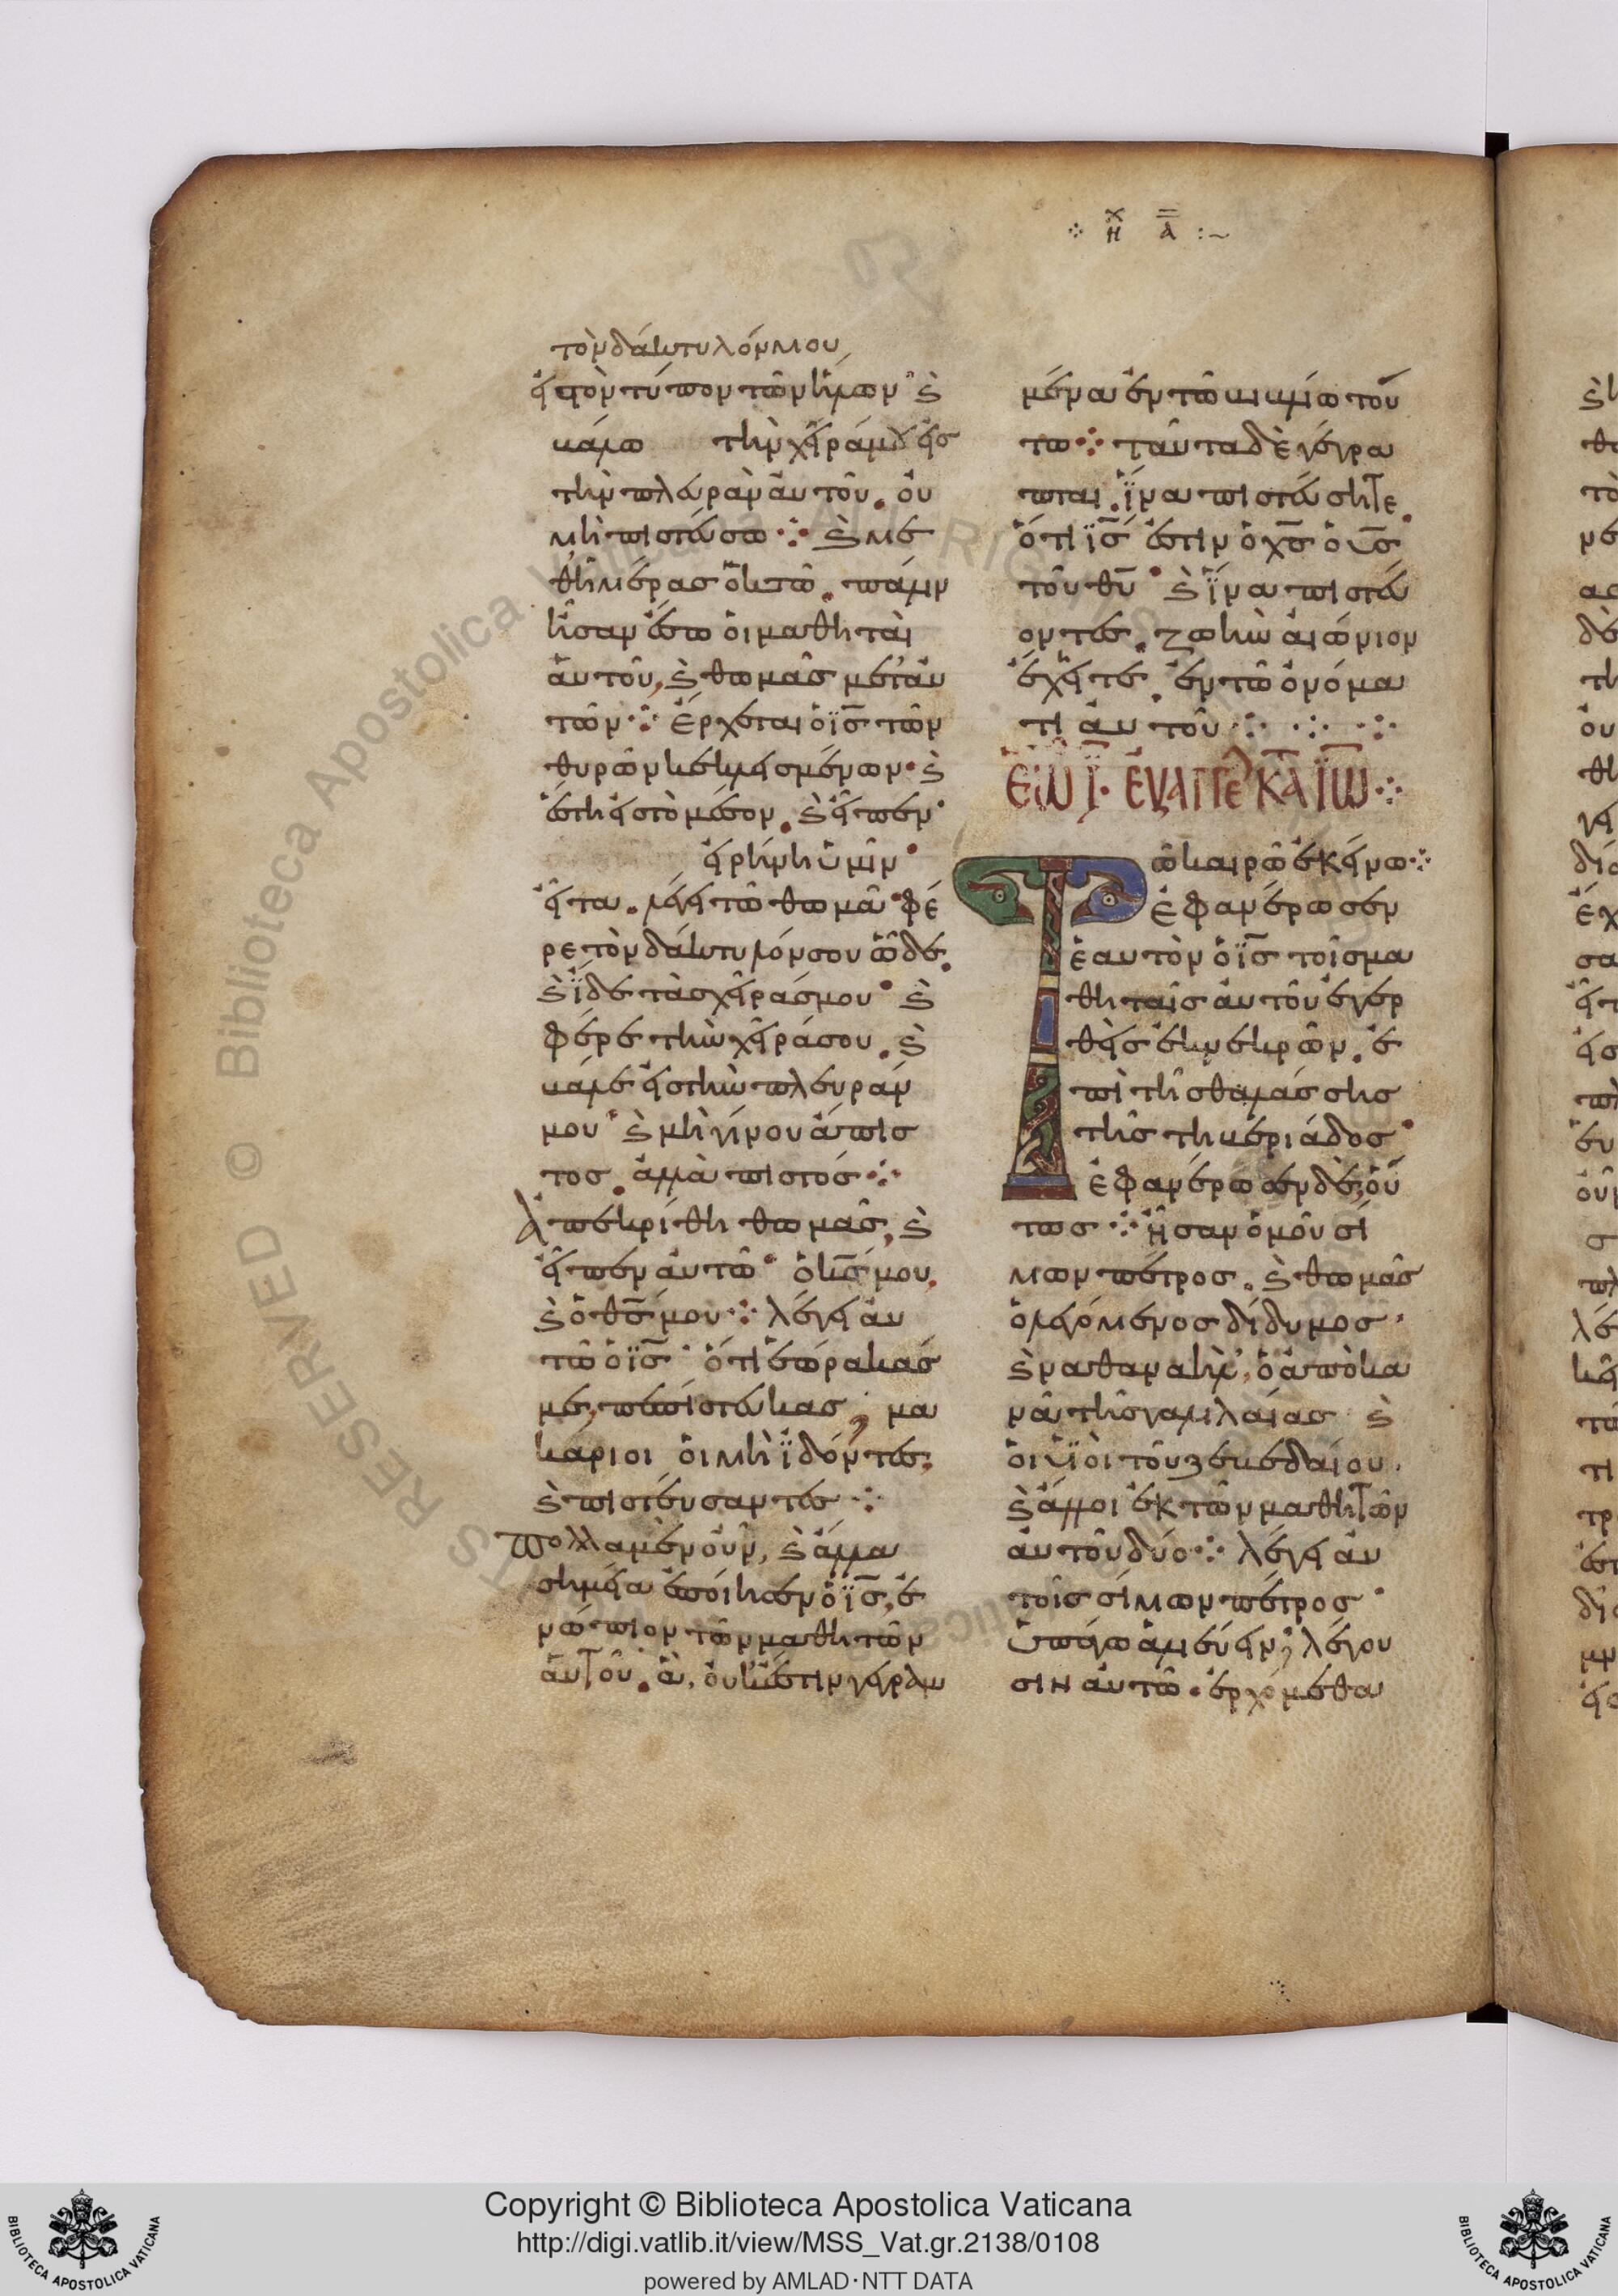 τὸν δάκτυλόν μου
εἰς τὸν τύπον τῶν ἥλων· ϗ
βάλω τὴν χεῖρά μου εἰς
τὴν πλευρὰν αὐτοῦ. οὐ
μὴ πιστεύσω ⁘ ϗ με
θ᾽ ἡμέρας ὀκτὼ. πάλιν
ἦσαν ἔσω οἱ μαθηταὶ
αὐτοῦ, ϗ θωμᾶς μετ᾽ αὐ
τῶν ⁘ ἔρχεται ὁ ις̅ τῶν
θυρῶν κεκλεισμένων· ϗ
ἔστη εἰς τὸ μέσον. ϗ εἶπεν·
εἰρήνη ὑμῖν·
εἶτα. λέγει τῶ θωμᾶ· φέ
ρε τὸν δάκτυλόν σου ὧδε.
ϗ ἴδε τὰς χεῖράς μου· ϗ
φέρε τὴν χεῖρά σου. ϗ
βάλε εἰς τὴν πλευράν
μου· ϗ μὴ γίνου ἄπισ
τος. ἀλλὰ πιστός ⁘
Ἀπεκρίθη θωμᾶς, ϗ
εἶπεν αὐτῶ· ὁ κς̅ μου,
ϗ ὁ θς̅ μου ⁘ λέγει αὐ
τῶ ὁ ις̅· ὅτι ἑώρακάς
με, πεπίστευκας; μα
κάριοι οἱ μὴ ἰδόντες,
ϗ πιστεύσαντες ⁘
Πολλα μὲν οὖν, ϗ ἄλλα
σημεῖα ἐποίησεν ὁ ις̅, ἐ
νώπιον τῶν μαθητῶν
αὐτοῦ. ἃ, οὐκ ἔστιν γεγραμ
⁘ κ̅η̅ α̅ :~
μένα ἐν τῶ βιβλίω τού
τω ⁘ ταῦτα δὲ γέγρα
πται. ἵνα πιστεύσητε.
ὅτι ις̅ ἐστιν ὁ χς̅ ὁ υς̅
τοῦ θυ̅· ϗ ἵνα πιστεύ
οντες. ζωὴν αἰώνιον
ἔχητε. ἐν τῶ ὀνόμα
τι αὐτοῦ ⁘ ⁘ ⁘
ΕΩ Ι̅· ΕΥΑΓΓΕΛ ΚΑ ΙΩ ⁘
Τῶ καιρῶ ἐκείνω ⁘
ἐφανέρωσεν
ἑαυτὸν ὁ ις̅ τοῖς μα
θηταῖς αὐτοῦ ἐγερ
θεὶς ἐκ νεκρῶν. ἐ
πὶ τῆς θαλάσσης
τῆς τηβεριάδος·
ἐφανέρωσεν δὲ, οὕ
τως ⁘ ἦσαν ὁμοῦ σί
μων πέτρος. ϗ θωμᾶς
ὁ λεγόμενος δίδυμος·
ϗ ναθαναὴλ, ὁ ἀπὸ κα
νᾶ τῆς γαλιλαίας ϗ
οἱ υἱοὶ τοῦ ζεβεδαίου.
ϗ ἄλλοι ἐκ τῶν μαθητῶν
αὐτοῦ δύο ⁘ λέγει αὐ
τοῖς σίμων πέτρος·
ὑπάγω ἁλιεύειν, λέγου
σιν αὐτῶ. ἐρχόμεθα
Copyright © Biblioteca Apostolica Vaticana
http://digi.vatlib.it/view/MSS_Vat.gr.2138/0108
powered by AMLAD·NTT DATA